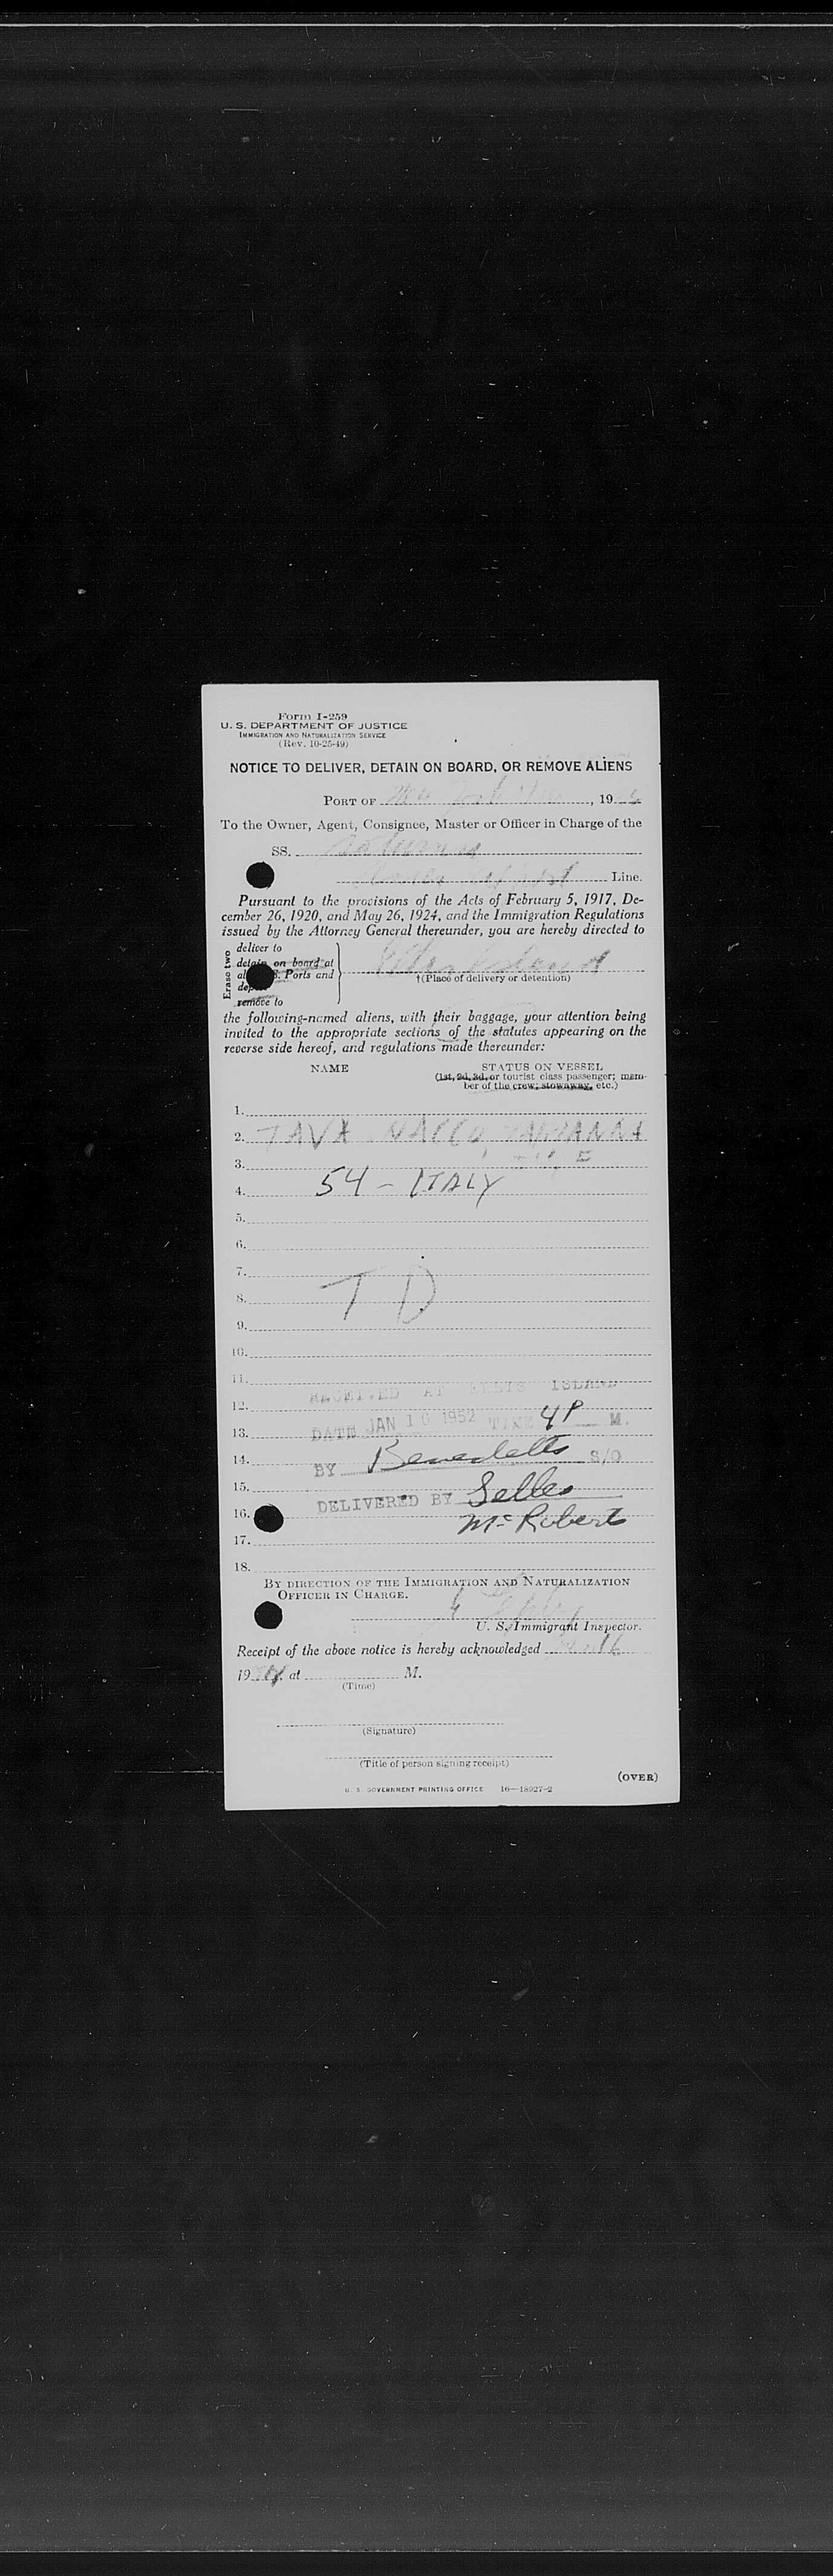 Form I-259
U. S. DEPARTMENT OF JUSTICE
IMMIGRATION AND NATURALIZATION SERVICE
(Rev. 10-25-49)
NOTICE TO DELIVER, DETAIN ON BOARD, OR REMOVE ALIENS
PORT OF New York , 19
To the Owner, Agent, Consignee, Master or Officer in Charge of the
SS. Saturnia
Line.
Pursuant to the provisions of the Acts of February 5, 1917, De-
cember 26, 1920, and May 26, 1924, and the Immigration Regulations
issued by the Attorney General thereunder, you are hereby directed to
Erase two
deliver to
detain on board at
Ports and
remove to
Ellis Island
†(Place of delivery or detention)
the following-named aliens, with their baggage, your attention being
invited to the appropriate sections of the statutes appearing on the
reverse side hereof, and regulations made thereunder:
NAME
STATUS ON VESSEL
(1st, 2d, 3d, or tourist class passenger; mem-
ber of the crew; stowaway, etc.)
1.
2. TAVA NACCO
3.
4. 54 - ITALY
5.
6.
7.
8. T D
9.
10.
11.
12. RECEIVED AT ELLIS ISLAND
13. DATE JAN 10 1952 TIME 4 P M.
14. BY Benedetto S/O
15.
16. DELIVERED BY Selles
McRoberts
17.
18.
BY DIRECTION OF THE IMMIGRATION AND NATURALIZATION
OFFICER IN CHARGE.
U. S. Immigrant Inspector.
Receipt of the above notice is hereby acknowledged
19 at M.
(Time)
(Signature)
(Title of person signing receipt)
(OVER)
U. S. GOVERNMENT PRINTING OFFICE 16—18927-2